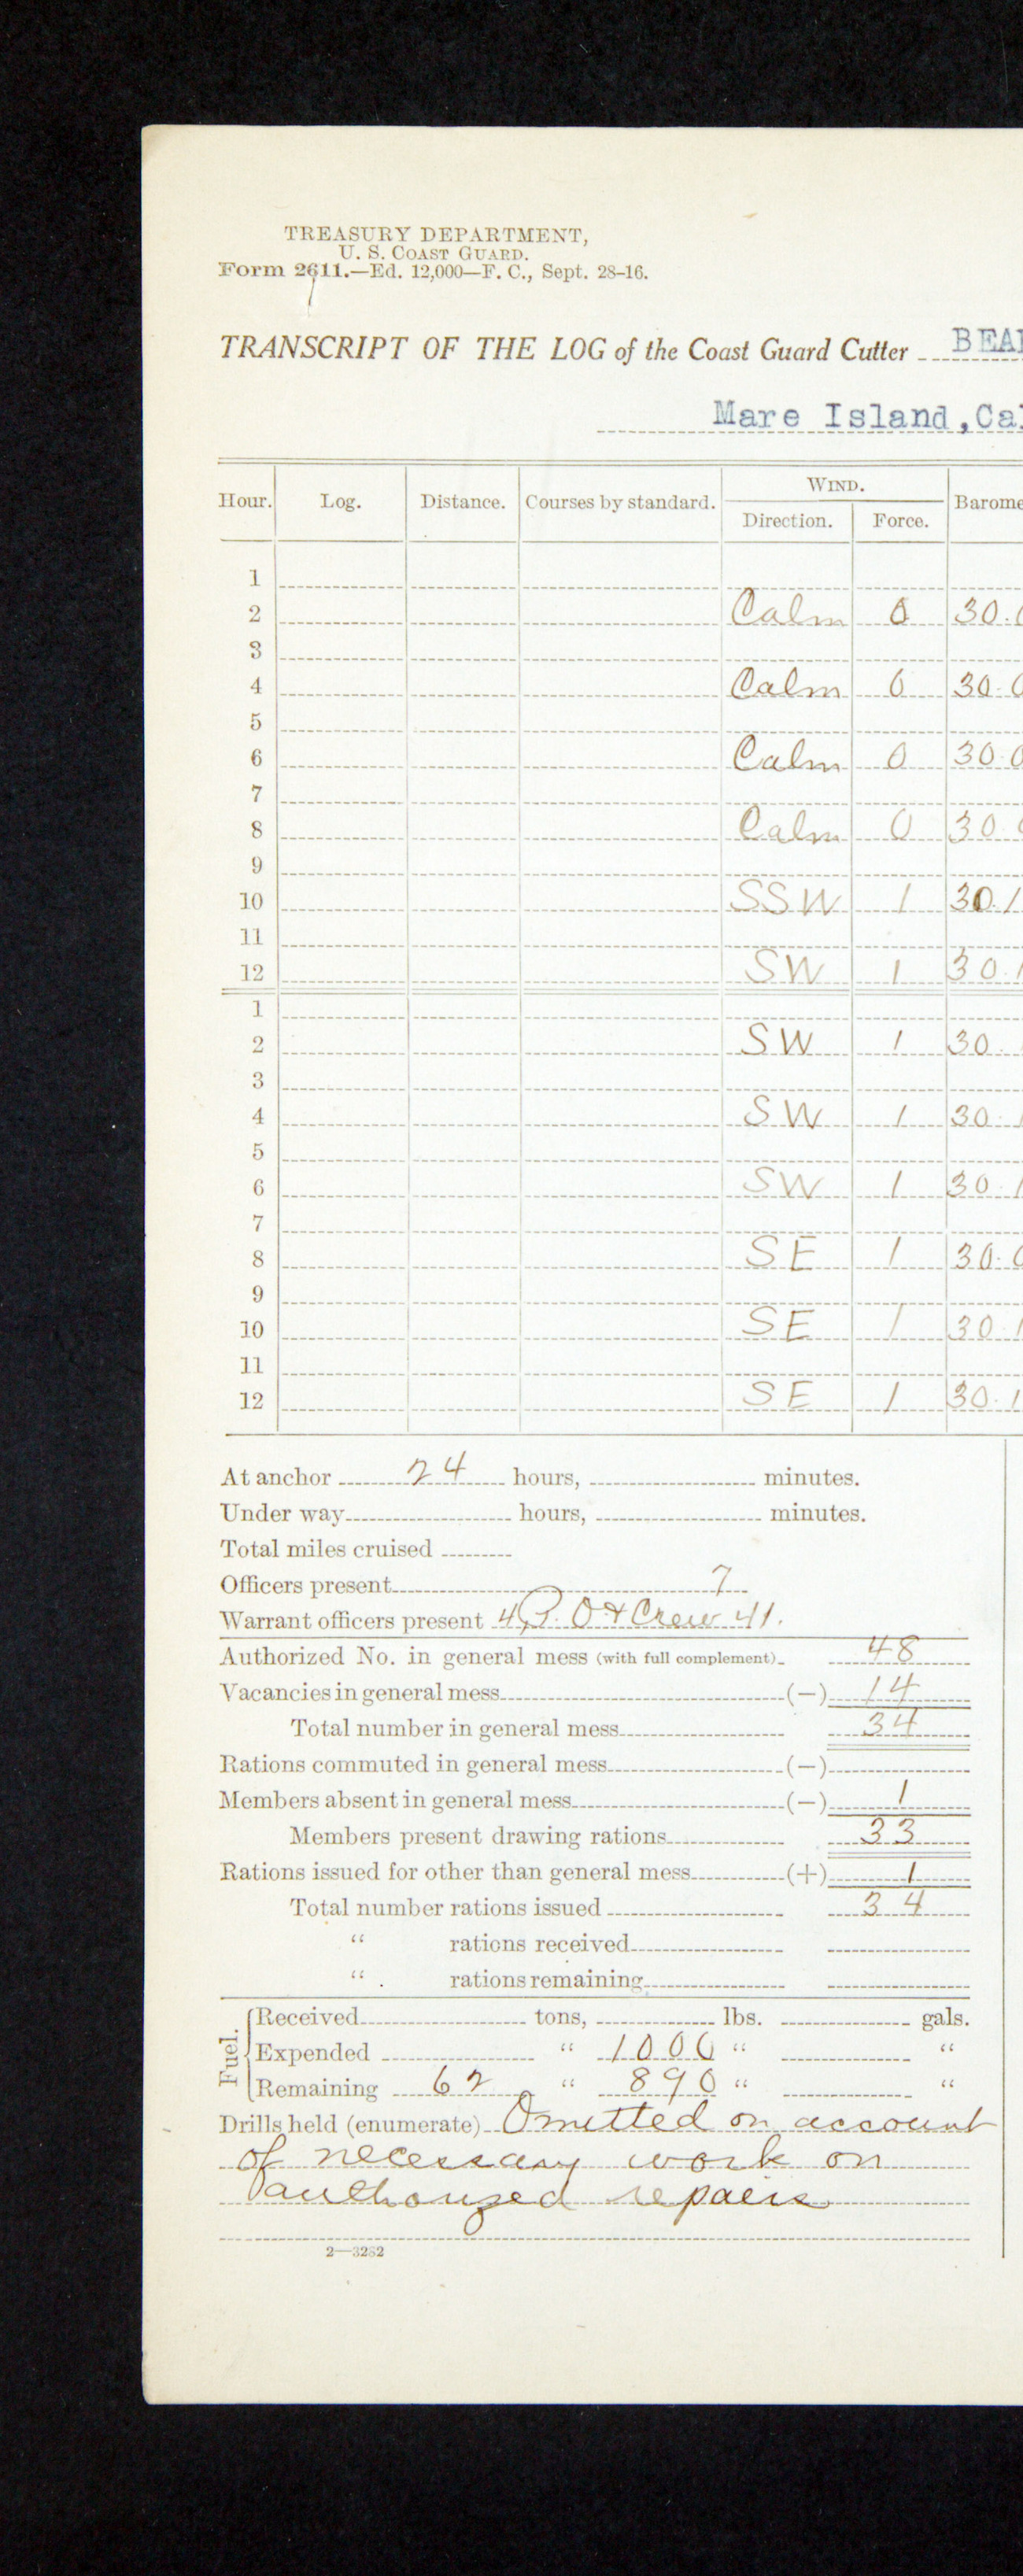 TREASURY DEPARTMENT,
U. S. COAST GUARD.
Form 2611.—Ed. 12,000—F. C., Sept. 28-16.
TRANSCRIPT OF THE LOG of the Coast Guard Cutter BEA
Mare Island, Ca
Hour. Log. Distance. Courses by standard. WIND. Barome
Direction. Force.
1
2 Calm 0 30.0
3
4 Calm 0 30.0
5
6 Calm 0 30.0
7
8 Calm 0 30.0
9
10 SSW 1 30.1
11
12 SW 1 30.1
1
2 SW 1 30.
3
4 SW 1 30.1
5
6 SW 1 30.1
7
8 SE 1 30.0
9
10 SE 1 30.1
11
12 SE 1 30.1
At anchor 24 hours, minutes.
Under way hours, minutes.
Total miles cruised
Officers present 7
Warrant officers present 4, P. O & Crew 41.
Authorized No. in general mess (with full complement) 48
Vacancies in general mess (—) 14
Total number in general mess 34
Rations commuted in general mess (—)
Members absent in general mess (—) 1
Members present drawing rations 33
Rations issued for other than general mess (+) 1
Total number rations issued 34
" rations received
" rations remaining
Fuel. Received tons, lbs. gals.
Expended " 1000 " "
Remaining 62 " 890 " "
Drills held (enumerate) Omitted on account
of necessary work on
authorized repairs
2—3262